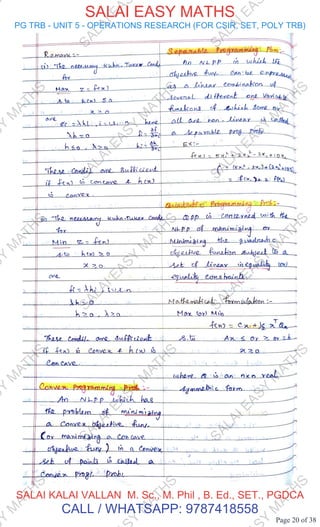 SALAI EASY MATHS
PG TRB - UNIT 5 - OPERATIONS RESEARCH (FOR CSIR, SET, POLY TRB)
Remark:-
(i) The necessary Kuhn-Tucker Condi
for
Max Z = f(x)
S.to h(x) ≤ 0
x ≥ 0
are
λh = 0
h ≤ 0, λ ≥ 0
These Condi are Sufficient
if f(x) is concave & h(x)
is convex.
The necessary Kuhn-Tucker Condi
for
Min Z = f(x)
S.to h(x) ≥ 0
x ≥ 0
are
λh = 0
h ≥ 0, λ ≥ 0
These Condi are Sufficient
if f(x) is Convex & h(x) is
Concave.
Convex Programming Prob:-
An NLPP which has
the problem of minimizing
a Convex objective func.
(or maximizing a Concave
objective func) in a Convex
set of points is called a
Convex Prog. Prob.
Separable Programming Prob:-
An NLPP in which the
objective func can be expressed
as a linear combination of
several different one variable
functions of which some or
all are non-linear is called
a separable prog. prob.
Ex:-
Quadratic Programming Prob:-
QPP is concerned with the
NLPP of maximizing or
Minimizing the quadratic
objective function subject to a
set of linear inequality or
equality constraints.
Mathematical Formulation:-
Max (or) Min
S.to Ax ≤ or ≥ or = b
x ≥ 0
where Q is an nxn real
Symmetric form
SALAI KALAI VALLAN M. Sc., M. Phil , B. Ed., SET., PGDCA
CALL / WHATSAPP: 9787418558
Page 20 of 38